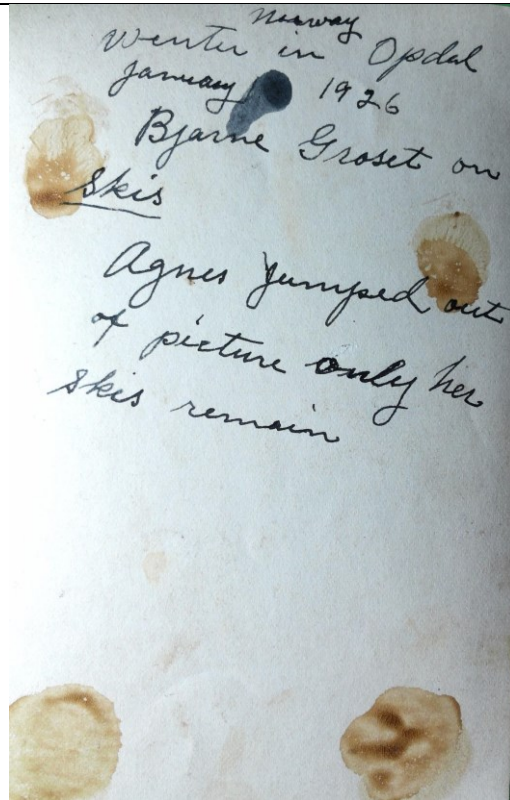 Norway
Winter in Opdal
January 1926
Bjarne Groset on
skis
Agnes jumped out
of picture only her
skis remain